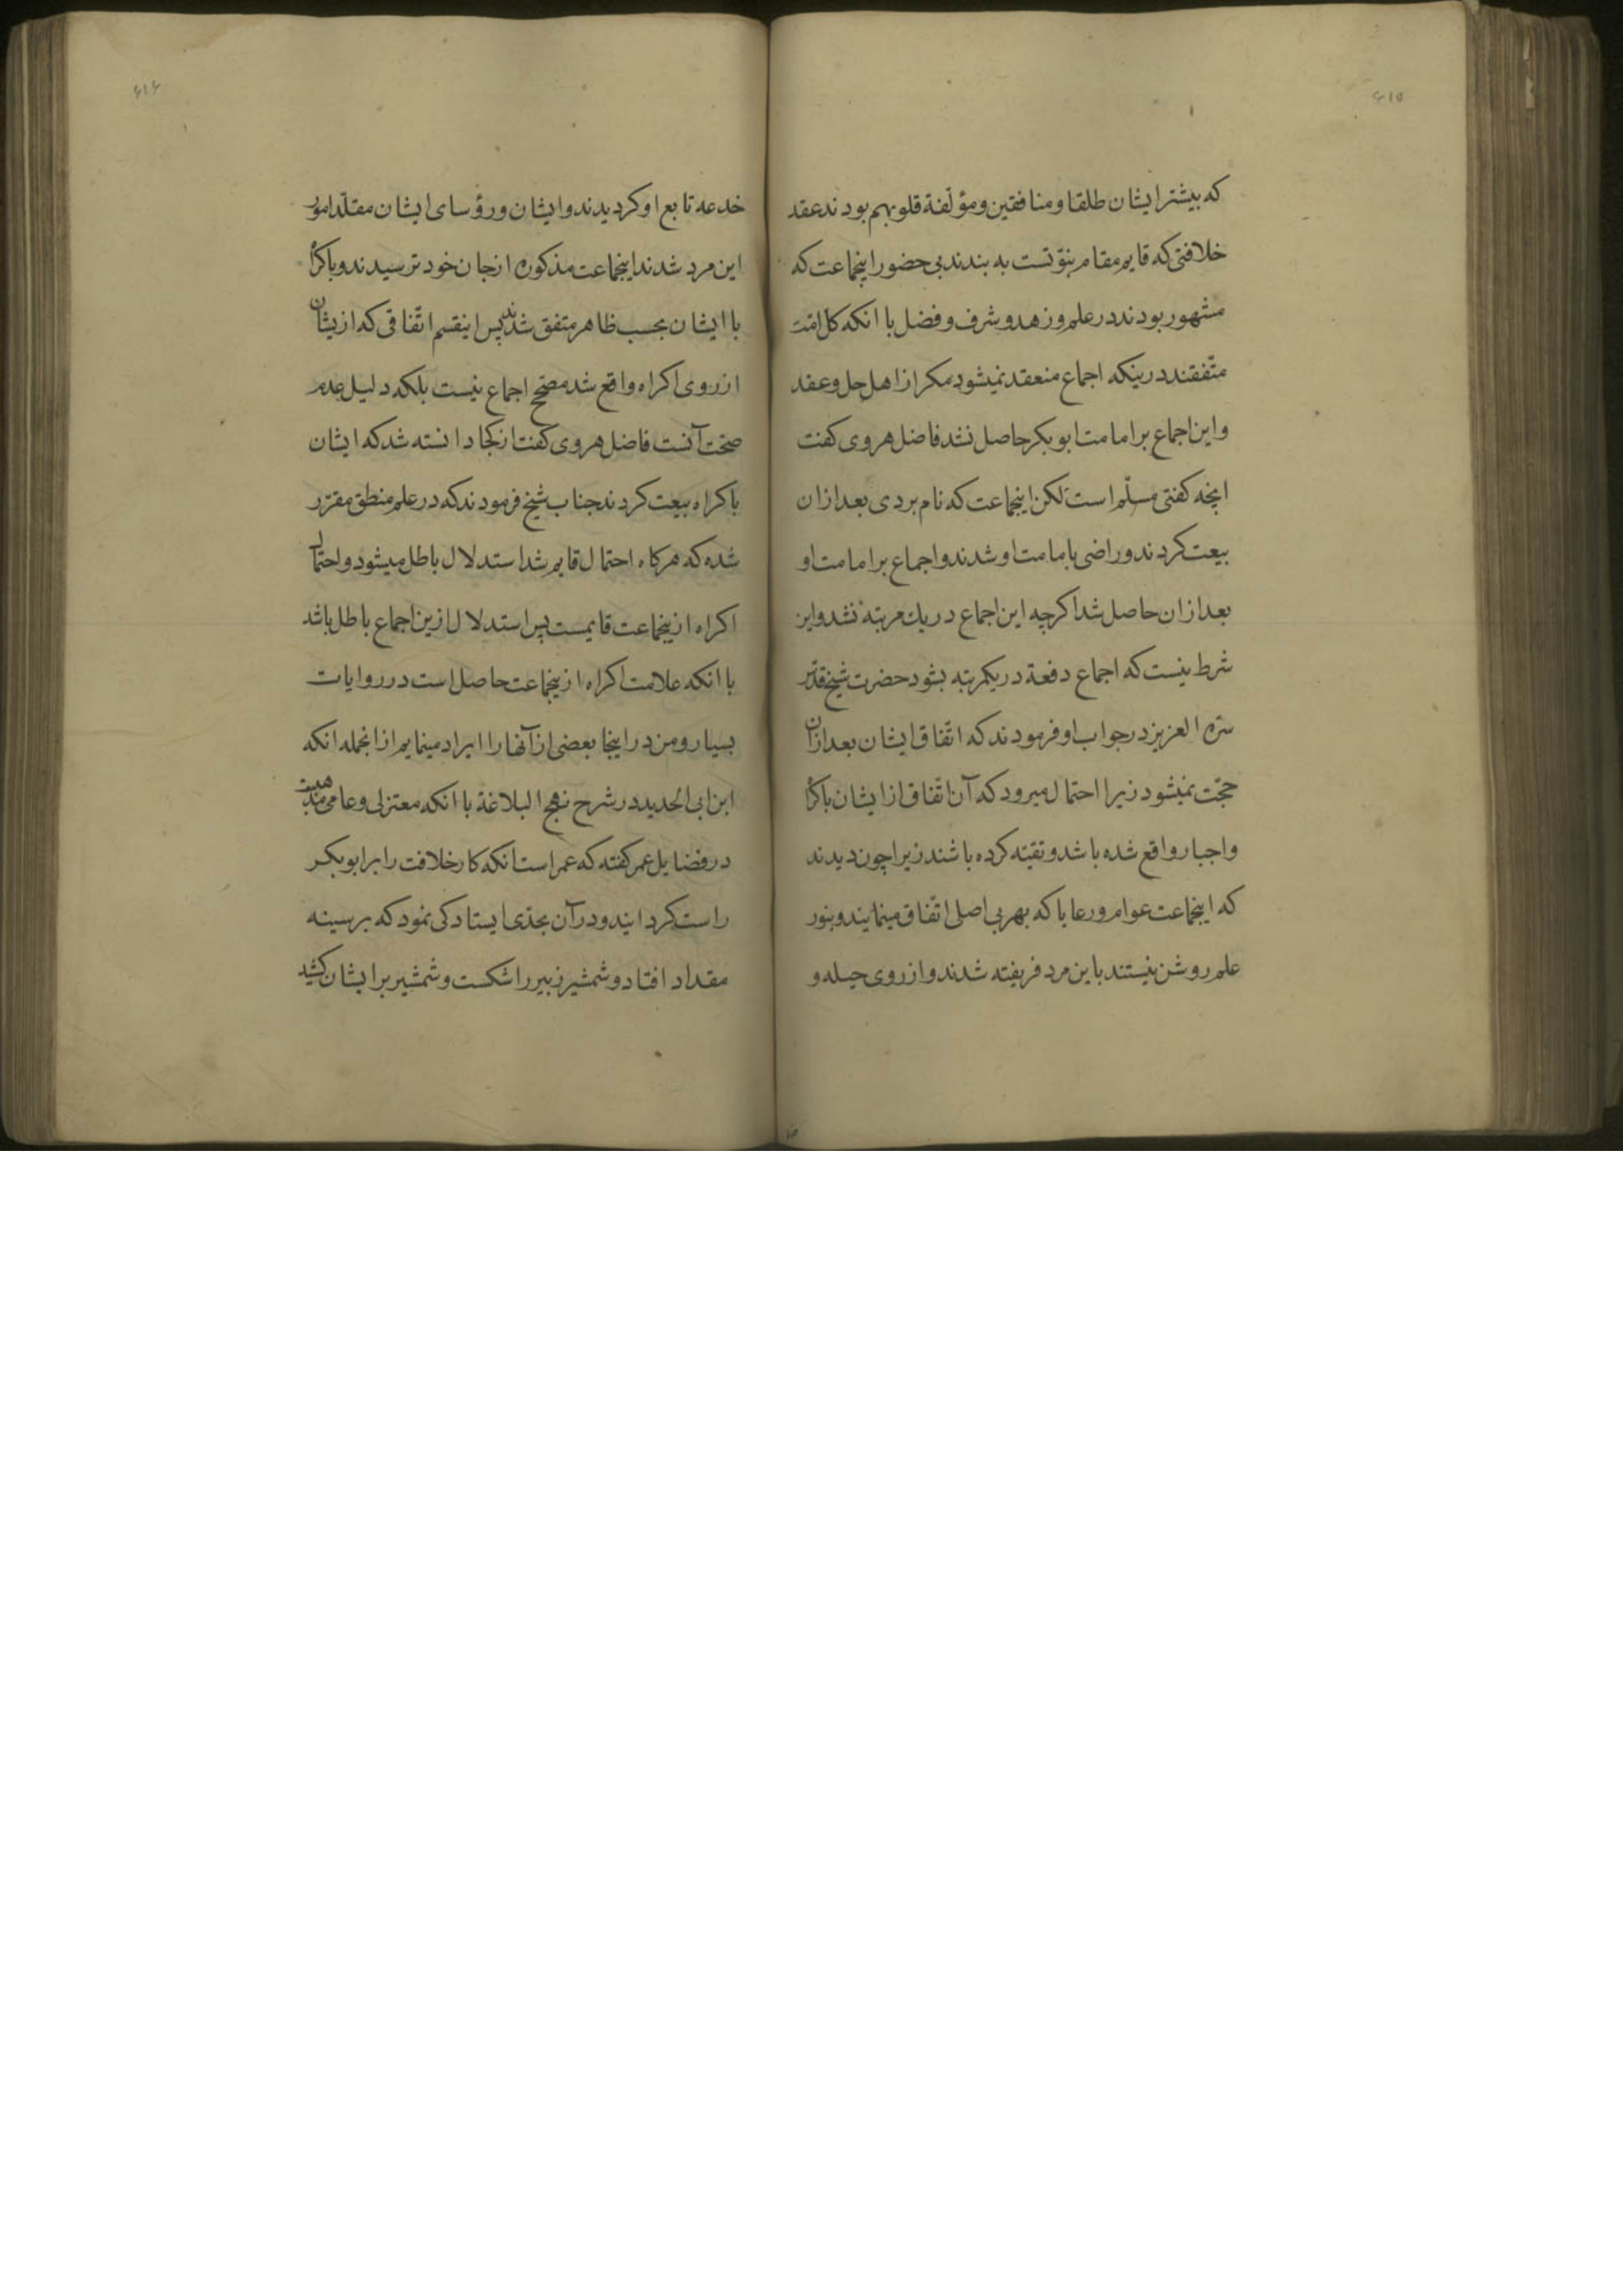 ۶۱۵
که بیشتر ایشان طلقا و منافقین و مؤلّفة قلوبهم بودند عقد
خلافتی که قایم مقام نبوّتست به بندند بی حضور اینجماعت که
مشهور بودند در علم و زهد و شرف و فضل با انکه کل امّت
متّفقند درینکه اجماع منعقد نمیشود مکر از اهل حل و عقد
و این اجماع بر امامت ابوبکر حاصل نشد فاضل هروی کفت
انچه کفتی مسلّم است لکن اینجماعت که نام بردی بعد ازان
بیعت کردند و راضی بامامت او شدند و اجماع بر امامت او
بعد ازان حاصل شد اکرچه این اجماع در یك مرتبه نشد و این
شرط نیست که اجماع دفعة در یکمرتبه بشود حضرت شیخ قدّس
سرّه العزیز در جواب او فرمودند که اتّفاق ایشان بعد ازان
حجّت نمیشود زیرا احتمال میرود که آن اتّفاق از ایشان باکراه
و اجبار واقع شده باشد و تقیّه کرده باشند زیرا چون دیدند
که اینجماعت عوام و رعایا که بهر بی اصلی اتّفاق مینمایند و بنور
علم روشن نیستند باین مرد فریفته شدند و از روی حیله و
۶۱۶
خدعه تابع او کردیدند و ایشان و رؤسای ایشان مقلّد امور
این مرد شدند اینجماعت مذکوره از جان خود ترسیدند و باکراه
با ایشان بحسب ظاهر متفق شدند پس اینقسم اتّفاقی که ازیشان
از روی اکراه واقع شد مصحّح اجماع نیست بلکه دلیل عدم
صحّت آنست فاضل هروی کفت از کجا دانسته شد که ایشان
باکراه بیعت کردند جناب شیخ فرمودند که در علم منطق مقرّر
شده که هرکاه احتمال قایم شد استدلال باطل میشود و احتمال
اکراه ازینجماعت قایمست پس استدلال ازین اجماع باطل باشد
با انکه علامت اکراه ازینجماعت حاصل است در روایات
بسیار و من در اینجا بعضی از آنها را ایراد مینمایم از انجمله انکه
ابن ابی الحدید در شرح نهج البلاغة با انکه معتزلی و عامی مذهبست
در فضایل عمر کفته که عمر است انکه کار خلافت را بر ابوبکر
راست کردانید و در آن بجدّی ایستادکی نمود که بر سینه
مقداد افتاد و شمشیر زبیر را شکست و شمشیر بر ایشان کشید